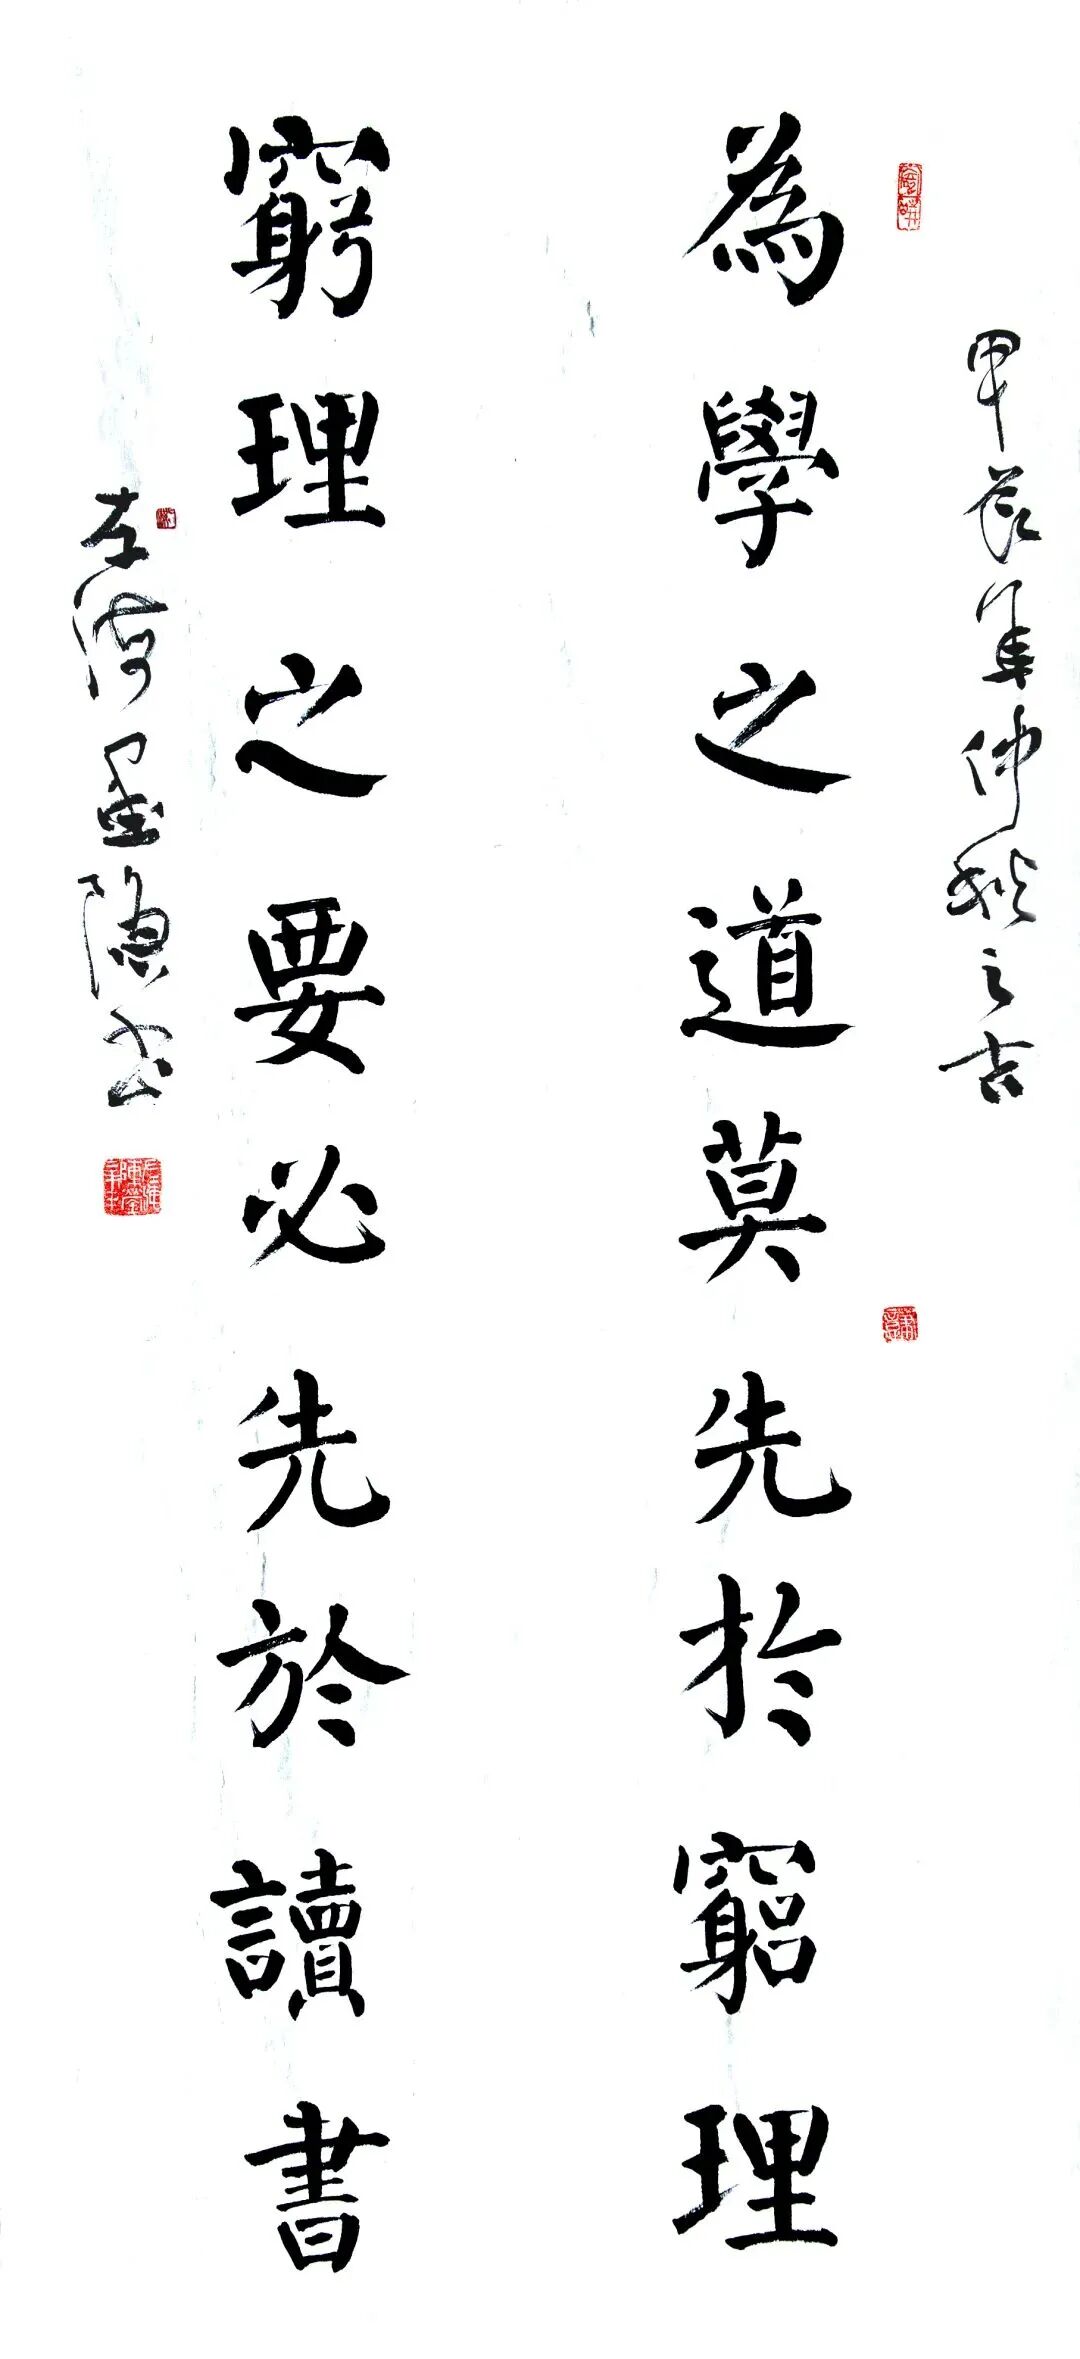 甲辰年仲秋之吉
為學之道莫先於竆理
窮理之要必先於讀書
左海墨隐书